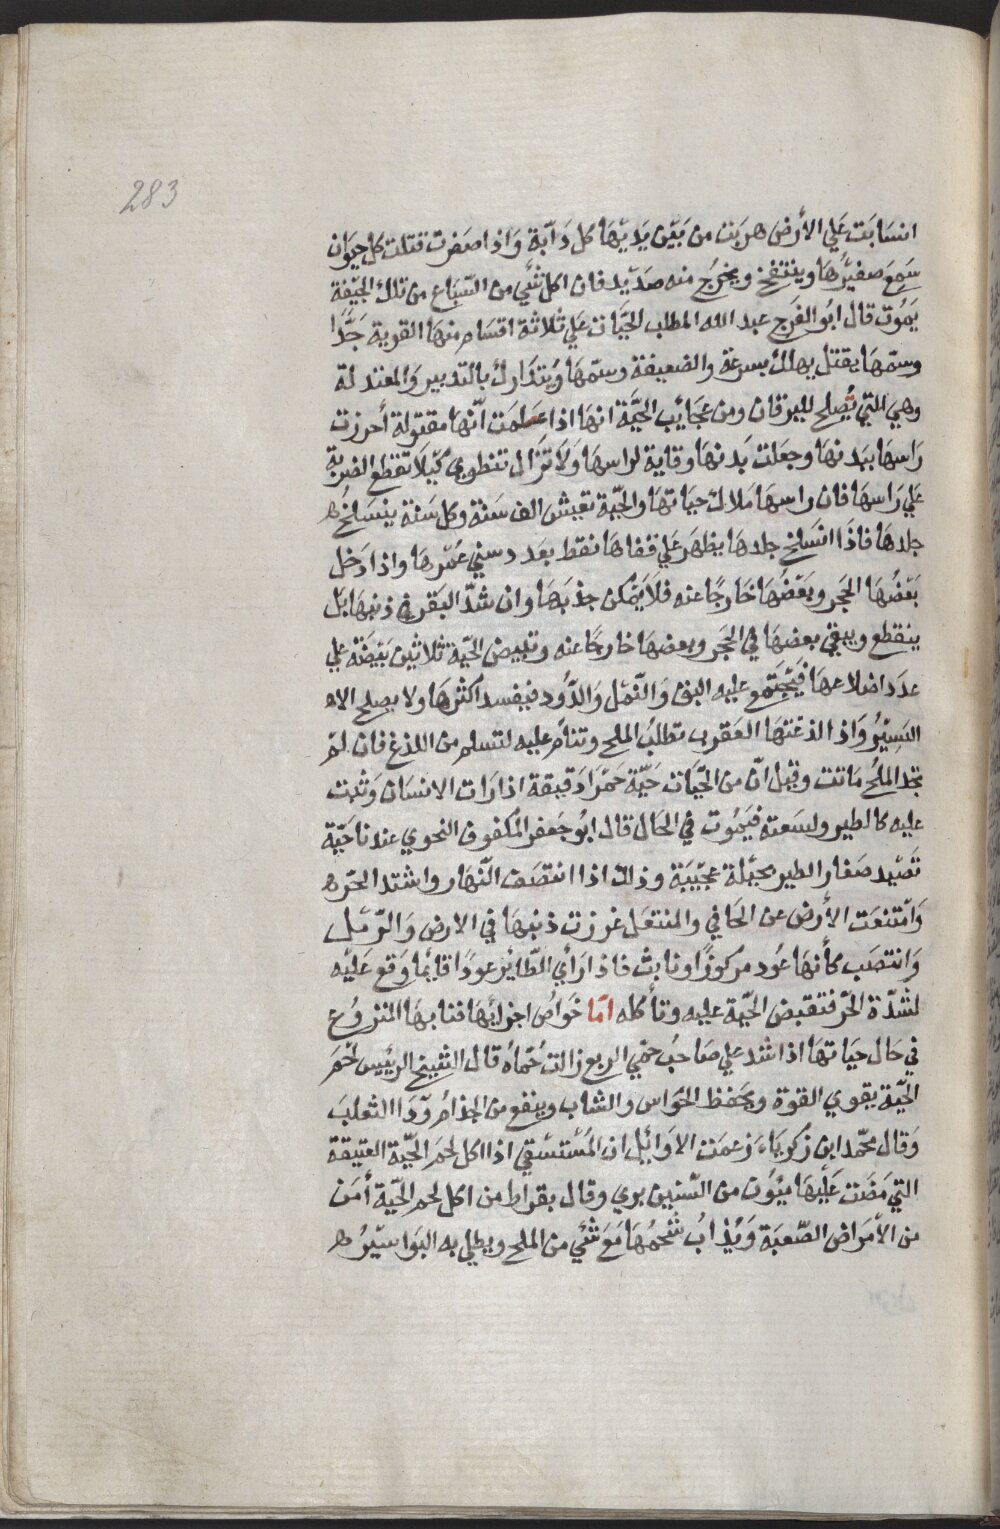 283
انسَابَت عَلي الأرض هربَت من بَيْن يَدَيْهَا كل دَآبَة وَاذا صَفرت قتلت كل حيوَان
سَمِعَ صفيْرُهَا وينتفخ ويخرُج منه صَدْيد فان اكل شَئي من السّبَاع من تلك الجيْفة
يَمُوت قال ابُو الفَرج عبد الله المطلب الحيَّات عَلي ثلاثة اقسَام منهَا القوية جَدًّا
وسمّهَا يقتل يهلك بسرعة والضعيفة وسمّهَا وَيُتدَارك بالتدبير وَالمعتدلة
وهي التي يُصلح لليرقان ومن عجَايب الحيَّة انهَا اذا عَلمَت انّهَا مقتولة أحرزت
رَاسهَا ببدنهَا وجعَلت بَدنهَا وقاية لراسهَا وَلَا تزَال تنطوي كَيْلَا تقطع الضربة
عَلي رَاسهَا فان راسهَا مَلاك حيَاتهَا والحيّة تعيش الف سَنة وكل سَنة ينسَلخ
جلدهَا فاذَا انسَلخ جلدهَا يظهَر عَلي قفاهَا نقط بعَدد سني عُمْرهَا واذا دَخل
بَعْضُهَا الحَجر وبَعْضُهَا خَارجًا عنه فلَا يُمْكن جذبَهَا وان شدّ البَقر في ذنبهَا بَل
ينقطع ويبقي بعضهَا في الحجَر وبعضهَا خارجًا عنه وتبيض الحيّة ثلاثين بَيْضَة علي
عدَد اضلاعهَا فَيَجْتَمع عليه البق وَالنّمْل وَالدُّود فيفسد اكثرهَا ولا يصلح الا
اليَسِيْرُ وَاذا لذغتهَا العقرب تطلبُ الملح وتنامُ عليه لتسلم من اللذغ فان لم
تجد الملحُ مَاتت وقيل انّ من الحيَّات حَيّة حَمْرَا دَقيقة اذا رَات الانسَان وَثبت
عليه كالطير ولسَعته فيَمُوت في الحَال قال ابُو جَعفر المكفوف النحوي عندنا حَيّة
تَصْيد صغار الطير بحيْلة عَجيْبَة وذلك اذا انتصَف النّهَار واشتد الحَرّ
وَامْتنعَت الأرض عن الحَافي والمنتعَل غرزت ذنبهَا في الارض وَالرّمْل
وَانتصَب كأنهَا عُود مركوزًا وثابت فاذا رَأي الطّايْر عودًا قايْمًا وَقع عَليْه
لشدّة الحَرّ فتقبض الحيّة عليه وتأكله امّا خَواصُ اجزائهَا فنابهَا المنزوع
في حَال حيَاتهَا اذا شد علي صَاحبُ حمي الربع زالت حُمَاهُ قال الشيخ الرئيس لحَم
الحيّة يقوي القوة ويَحفظ الحَواس والشاب وينفع من الجذام وَدَا الثعلب
وَقال محمّد ابن زكريَّا زعمَت الاوَائل ان المُسْتسْقي اذا اكل لحَم الحَيّة العتيقة
التي مَضت عَليْهَا ميْؤن من السّنين بري وقال بقراط من اكل لحم الحيَّة أمَن
من الأمرَاض الصّعبَة وَيُذابُ شحمُهَا مَع شَئي من الملح ويطلي به البَوَاسيْر